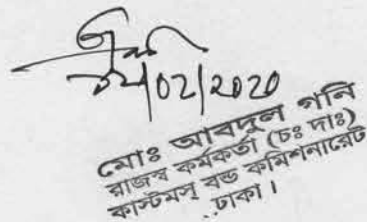 /02/2020
মোঃ আবদুল গনি
রাজস্ব কর্মকর্তা (চঃ দাঃ)
কাস্টমস্ বন্ড কমিশনারেট
ঢাকা।